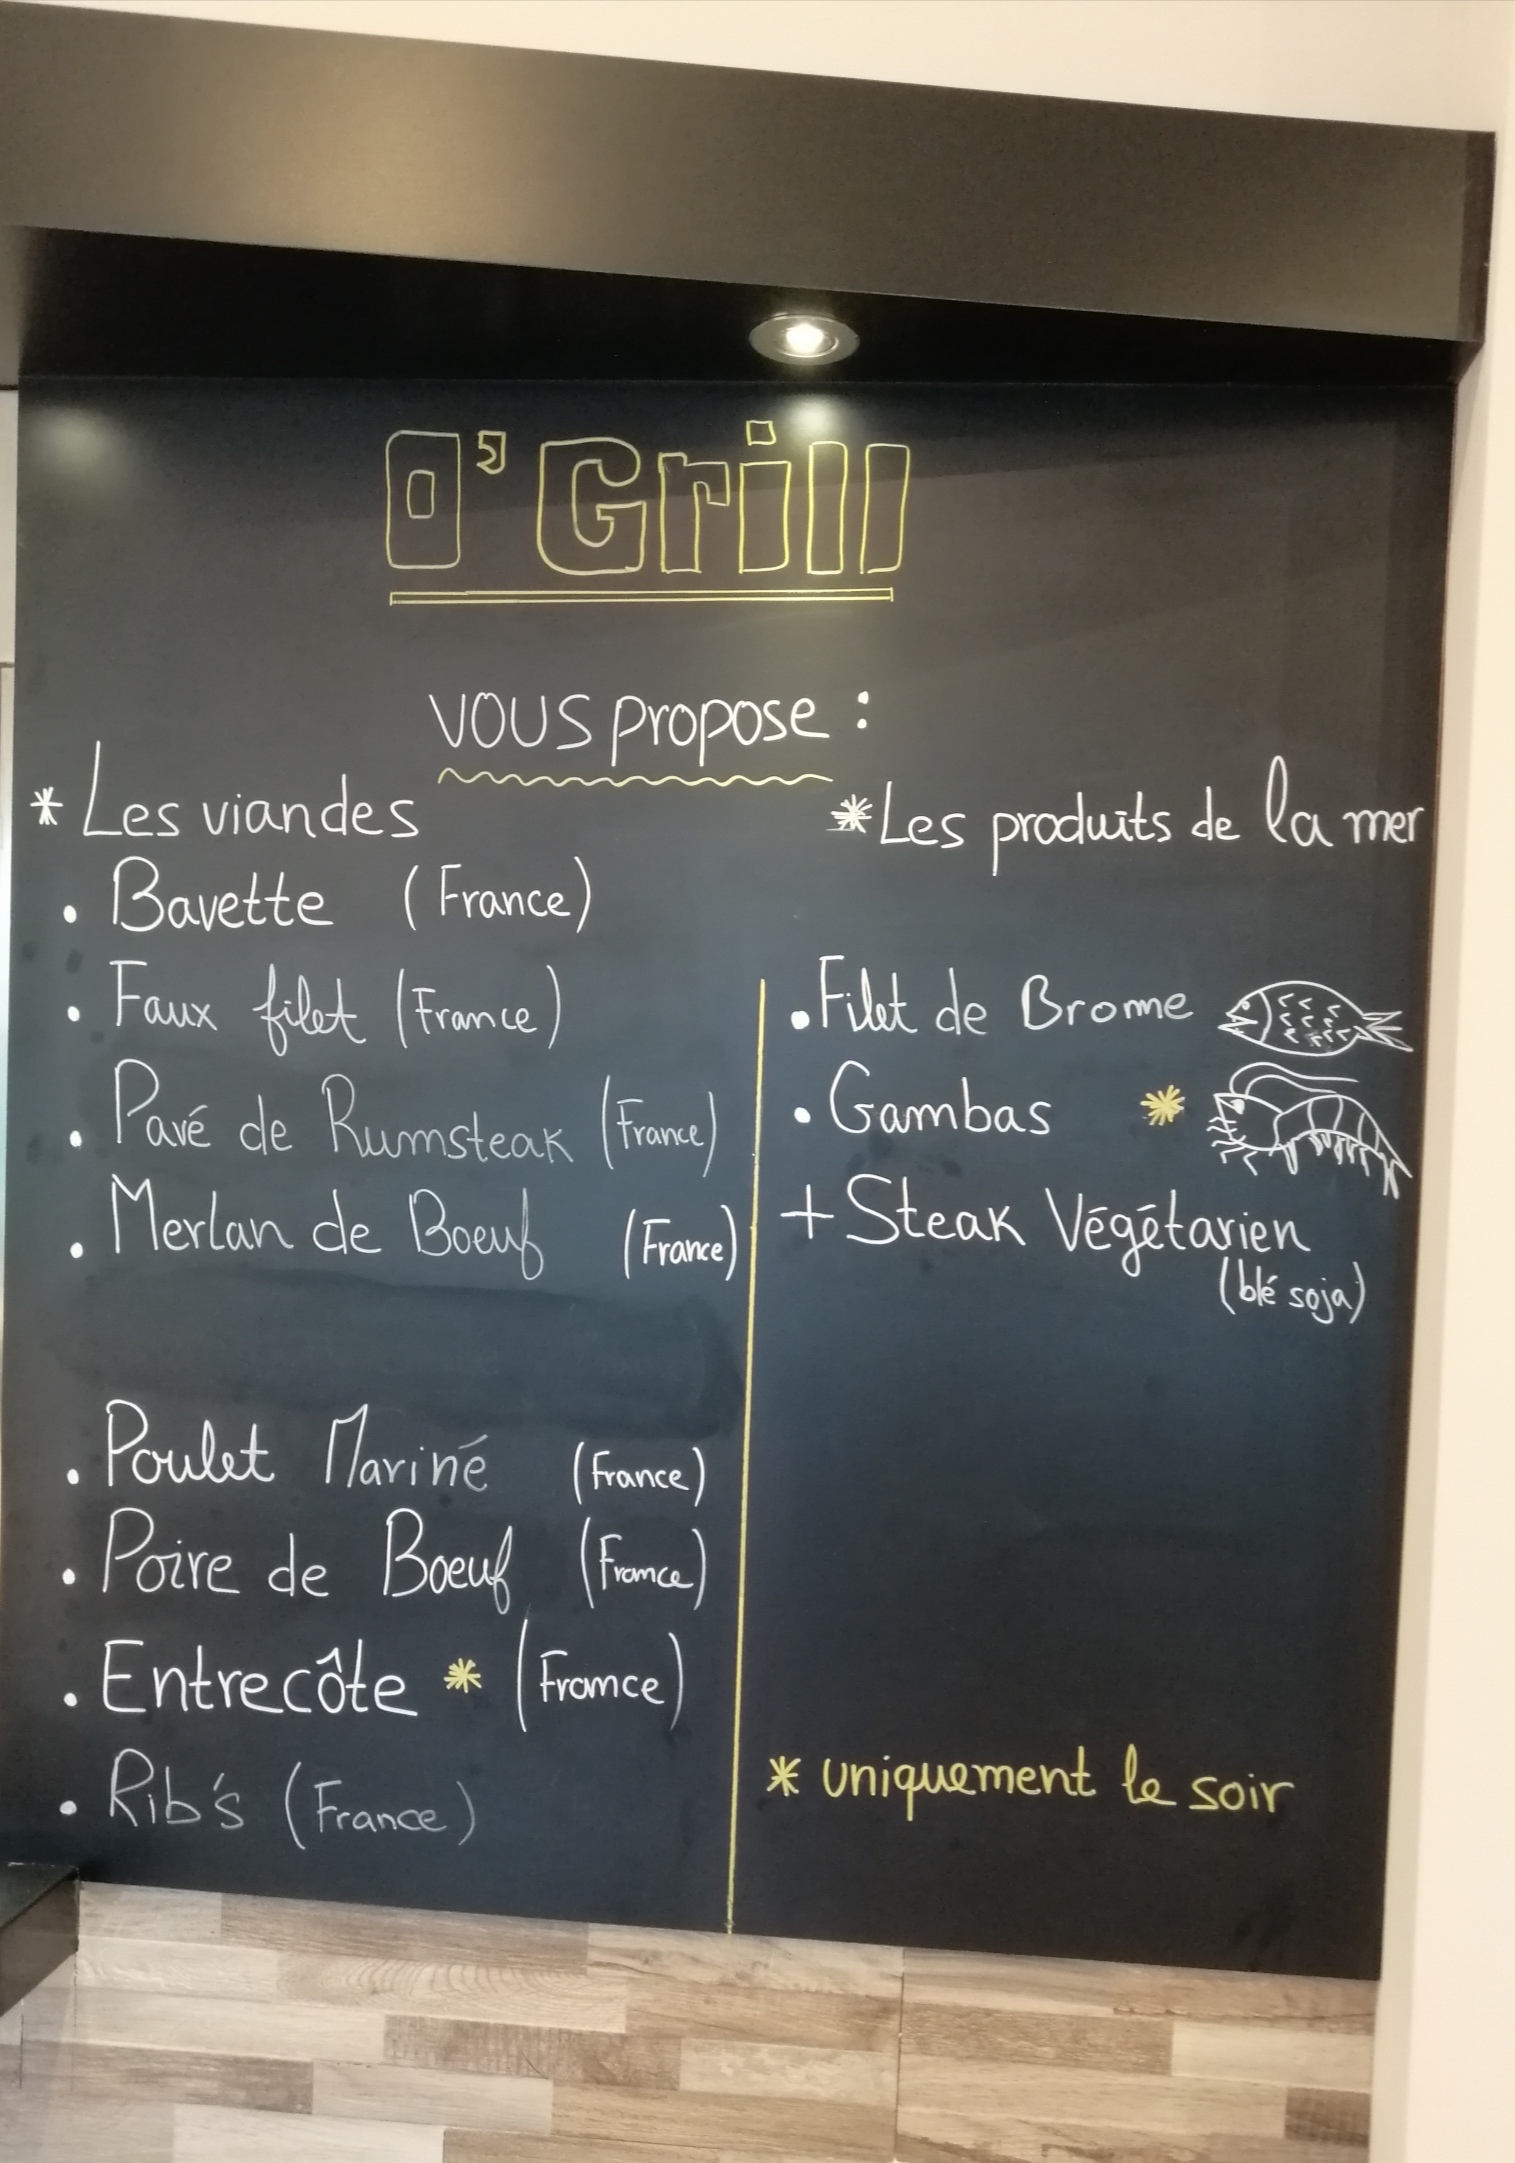 O'Grill
VOUS propose :
* Les viandes
. Bavette (France)
. Faux filet (France)
. Pavé de Rumsteak (France)
. Merlan de Boeuf (France)
. Poulet Mariné (France)
. Poire de Boeuf (France)
. Entrecôte * (France)
. Rib's (France)
* Les produits de la mer
. Filet de Brome
. Gambas *
+ Steak Végétarien
(blé soja)
* uniquement le soir